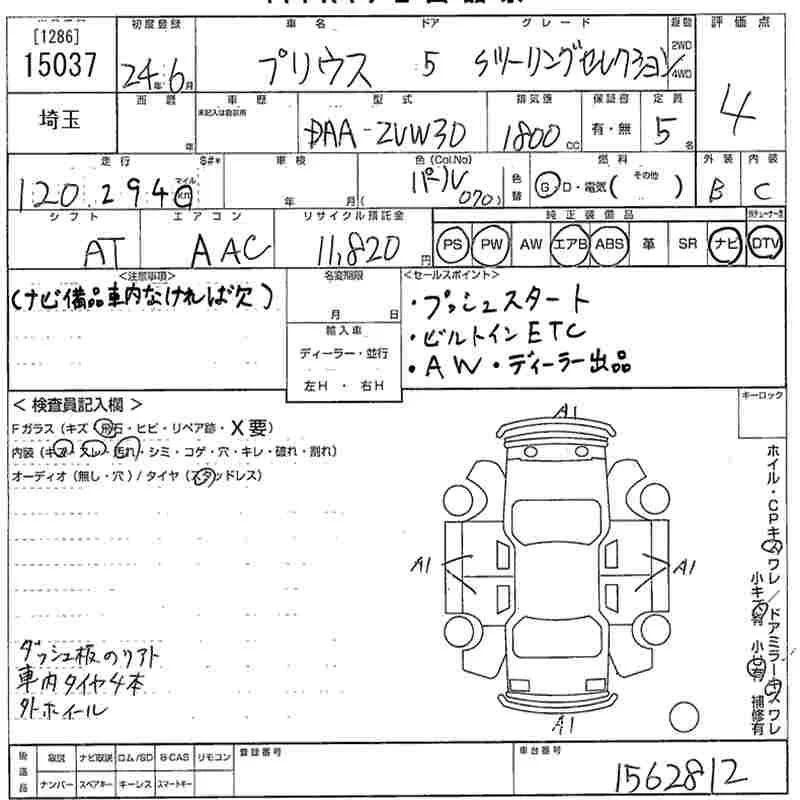 [1286]
15037
初度登録
24年6月
車名
プリウス
ドア
5
グレード
Sツーリングセレクション
2WD
4WD
評価点
4
埼玉
年
車歴
未記入は自家用
型式
DAA-ZVW30
排気量
1800CC
保証書
有・無
定員
5名
走行
120,294
マイル
km
$#*
車検
年 月
色(Col.No)
パール
( 070)
色替
燃料
G・D・電気( その他 )
外装
B
内装
C
シフト
AT
エアコン
AAC
リサイクル預託金
11,820円
純正装備品
PS PW AW エアB ABS 革 SR ナビ DTV
<注意事項>
(ナビ備品車内なければ欠)
名変期限
月 日
輸入車
ディーラー・並行
左H・右H
<セールスポイント>
・プッシュスタート
・ビルトインETC
・AW・ディーラー出品
<検査員記入欄>
Fガラス(キズ・飛石・ヒビ・リペア跡・X要)
内装(キズ・スレ・汚れ・シミ・コゲ・穴・キレ・破れ・割れ)
オーディオ(無し・穴)/タイヤ(スタッドレス)
キーロック
A1
A1
A1
A1
ホイル・CPキズワレ/ドアミラーキズワレ
小キズ有 小凹有 補修有
車内タイヤ4本
外ホイール
後送品
取説 ナビ取説 ロム/SD B-CAS リモコン
ナンバー スペアキー キーレス スマートキー
登録番号
車台番号
1562812